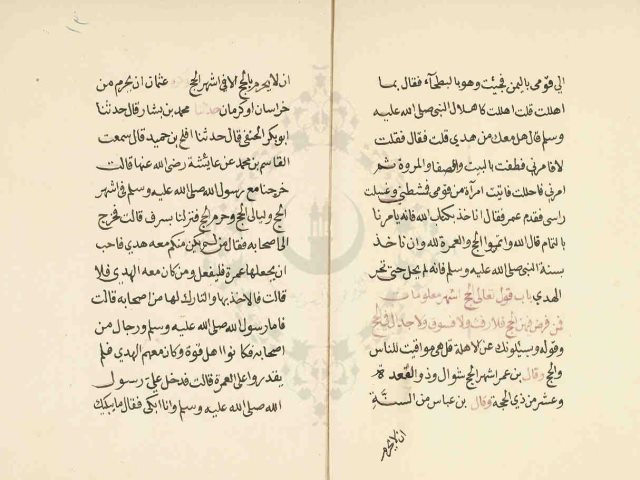 الي قومي باليمن فجئت وهو بالبطحآء فقال بما
اهللت قلت اهللت كاهلال النبي صلى الله عليه
وسلم قال هل معك من هدي قلت فقال فقلت
لا فامرني فطفت بالبيت والصفا والمروة ثم
امرني فاحللت فاتيت امراة من قومي فمشطني وغسلت
راسي فقدم عمر فقال ان اخذ بكتاب الله فانه يامرنا
بالتمام قال الله واتموا الحج والعمرة لله وان ناخذ
بسنة النبي صلى الله عليه وسلم فانه لم يحل حتى نحر
الهدي باب قول تعالى الحج اشهر معلومات
فمن فرض فيهن الحج فلا رفث ولا فسوق ولا جدال في الحج
وقوله ويسئلونك عن الاهلة قل هي مواقيت للناس
والحج وقال بن عمر اشهر الحج شوال وذو القعدة
وعشر من ذي الحجة وقال بن عباس من السنّة
ان لا يحرم
ان لا يحرم بالحج الا في اشهر الحج عثمان ان يحرم من
خراسان او كرمان حدثنا محمد بن بشار قال حدثنا
ابو بكر الحنفي قال حدثنا افلح بن حميد قال سمعت
القاسم بن محمد عن عائشة رضي الله عنها قالت
خرجنا مع رسول الله صلى الله عليه وسلم في اشهر
الحج وليالي الحج وحرم الحج فنزلنا بسرف قالت فخرج
الى اصحابه فقال من لم يكن منكم معه هدي فاحب
ان يجعلها عمرة فليفعل ومن كان معه الهدي فلا
قالت فالاخذ بها والتارك لها من اصحابه قالت
فاما رسول الله صلى الله عليه وسلم ورجال من
اصحابه فكانوا اهل قوة وكان معهم الهدي فلم
يقدروا على العمرة قالت فدخل علي رسول
الله صلى الله عليه وسلم وانا ابكى فقال ما يبكيك